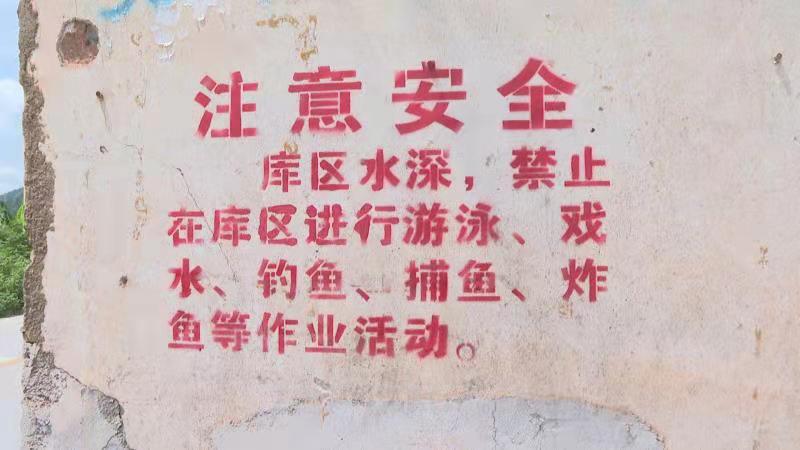 注意安全
库区水深，禁止
在库区进行游泳、戏
水、钓鱼、捕鱼、炸
鱼等作业活动。